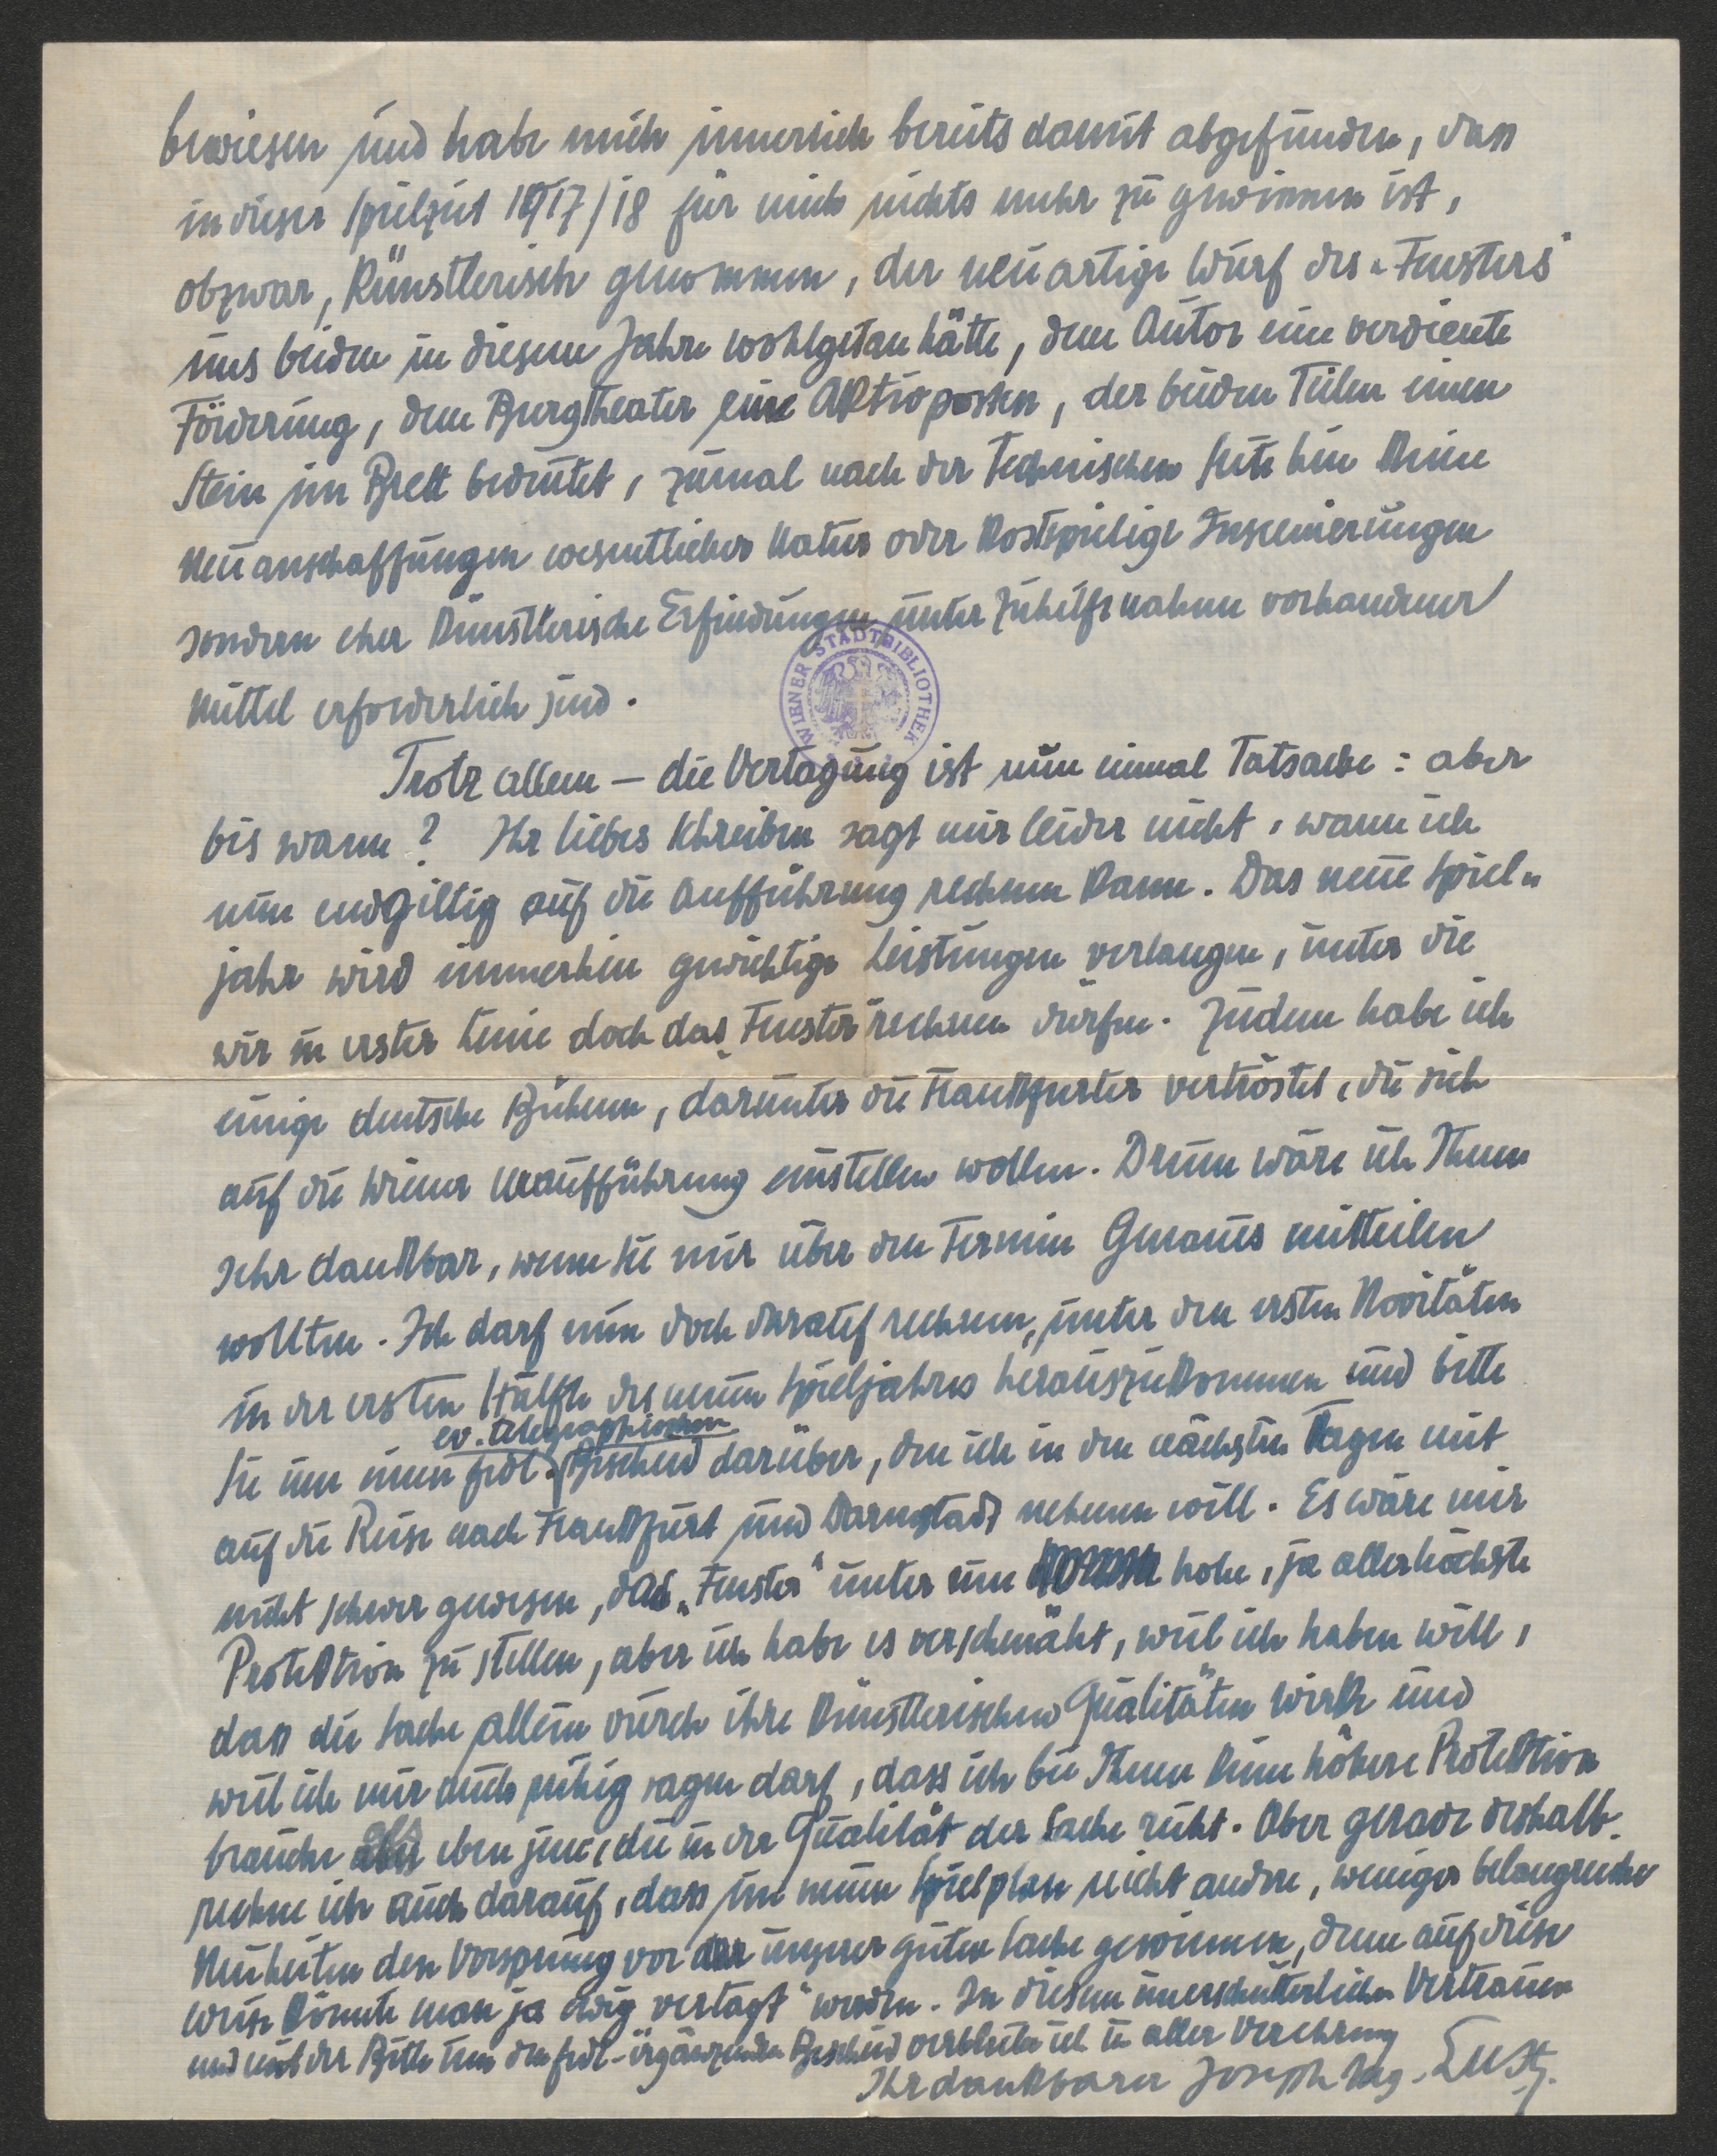 bewiesen und habe mich innerlich bereits damit abgefunden, dass
in dieser Spielzeit 1917/18 für mich nichts mehr zu gewinnen ist,
obzwar, künstlerisch genommen, der neuartige Wurf des „Fensters"
uns beiden in diesem Jahre wohlgetan hätte, dem Autor eine verdiente
Förderung, dem Burgtheater eine Aktivposten, der beiden Teilen einen
Stein im Brett bedeutet, zumal nach der technischen Seite hin keine
Neuanschaffungen wesentlicher Natur oder kostspielige Inscenierungen
sondern eher künstlerische Erfindungen unter Zuhilfenahme vorhandener
Mittel erforderlich sind.
WIENER STADTBIBLIOTHEK
Trotz allem – die Vertagung ist nun einmal Tatsache: aber
bis wann? Ihr liebes Schreiben sagt mir leider nicht, wann ich
nun endgiltig auf die Aufführung rechnen kann. Das neue Spiel-
jahr wird immerhin gewichtige Leistungen verlangen, unter die
wir in erster Linie doch das „Fenster" rechnen dürfen. Zudem habe ich
einige deutsche Bühnen, darunter die Frankfurter vertröstet, die sich
auf die Wiener Uraufführung einstellen wollen. Drum wäre ich Ihnen
sehr dankbar, wenn Sie mir über den Termin Genaues mitteilen
wollten. Ich darf nun doch darauf rechnen, unter den ersten Novitäten
in der ersten Hälfte des neuen Spieljahres herauszukommen und bitte
ev. telegraphischen
Sie um einen frdl. Bescheid darüber, den ich in den nächsten Tagen mit
auf die Reise nach Frankfurt und Darmstadt nehmen will. Es wäre mir
nicht schwer gewesen, das „Fenster" unter eine hohe, ja allerhöchste
Protektion zu stellen, aber ich habe es verschmäht, weil ich haben will,
dass die Sache allein durch ihre künstlerischen Qualitäten wirke und
weil ich mir auch ruhig sagen darf, dass ich bei Ihnen keine höhere Protektion
brauche als eben jene, die in der Qualität der Sache ruht. Aber gerade deshalb
rechne ich auch darauf, dass im neuen Spielplan nicht andere, weniger belangreiche
Neuheiten den Vorsprung vor unserer guten Sache gewinnen, denn auf diese
Weise könnte man ja ewig „vertagt" werden. In diesem unerschütterlichen Vertrauen
und mit der Bitte um den frdl. ergänzenden Bescheid verbleibe ich in aller Verehrung
Ihr dankbarer Joseph Aug. Lux.